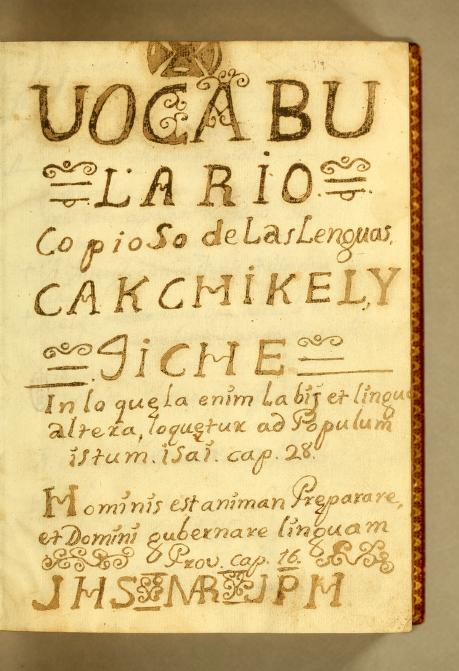 VOCABU
LARIO
Copioso de Las Lenguas,
CAKCHIKEL, Y
4iCHE
In loquęla enim Labij et lingua
altera, loquętur ad Populum
istum. isai. cap. 28.
Hominis est animan Pręparare,
et Domini gubernare linguam
Prov. cap. 16.
JHS NR JPM